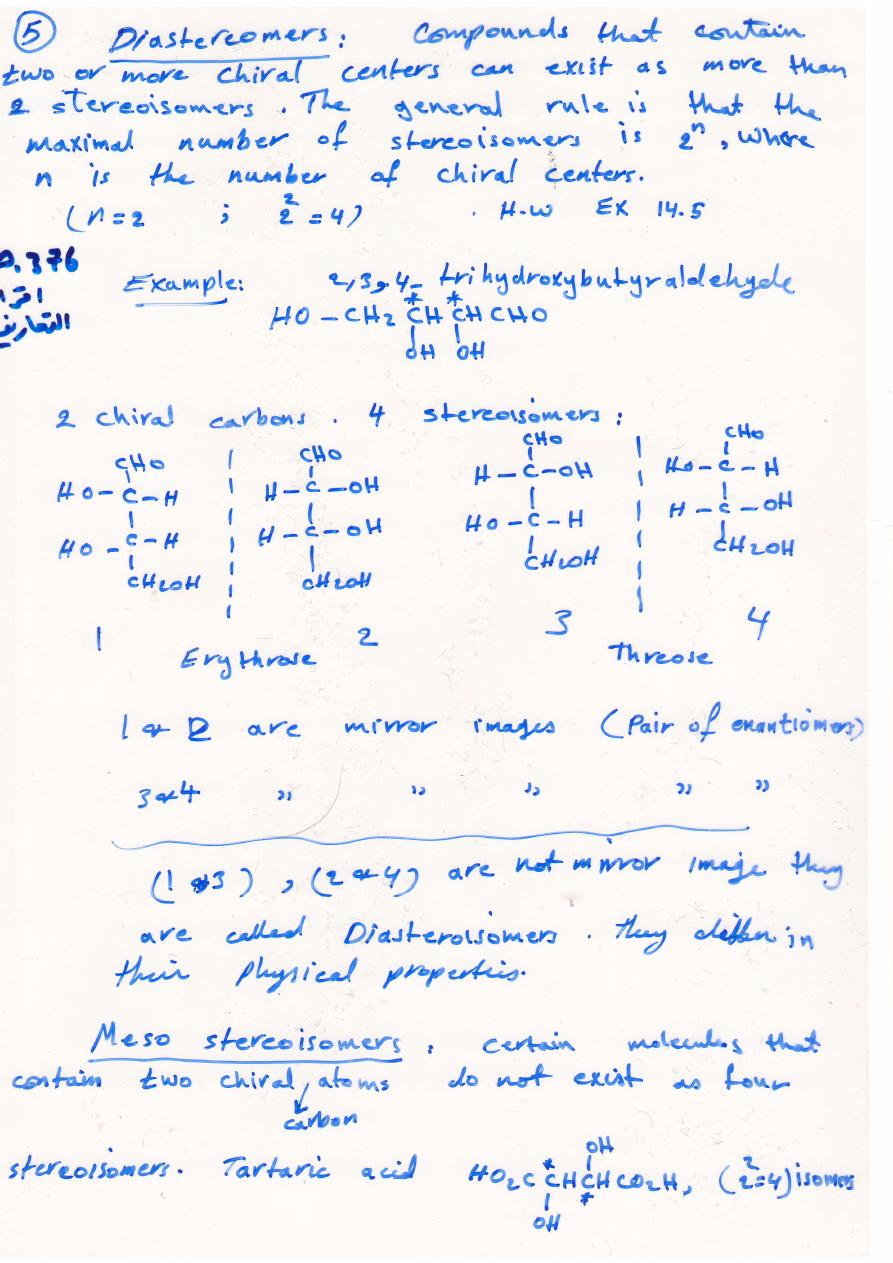 5 Diastereomers: Compounds that contain
two or more chiral centers can exist as more than
2 stereoisomers. The general rule is that the
maximal number of stereoisomers is 2ⁿ, where
n is the number of chiral centers.
(n=2 ; 2²=4) . H.W EX 14.5
P.376
اقرا
التعاريف
Example: 2,3,4- trihydroxybutyraldehyde
HO – CH2 *CH *CH CHO
OH OH
2 chiral carbons. 4 stereoisomers:
CHO CHO CHO CHO
HO – C – H H – C – OH H – C – OH HO – C – H
HO – C – H H – C – OH HO – C – H H – C – OH
CH2OH CH2OH CH2OH CH2OH
1 2 3 4
Erythrose Threose
1 & 2 are mirror images (Pair of enantiomers)
3 & 4 ,, ,, ,, ,, ,,
(1 & 3), (2 & 4) are not mirror image they
are called Diasteroisomers. They differ in
their physical properties.
Meso stereoisomers: certain molecules that
contain two chiral atoms do not exist as four
carbon
OH
stereoisomers. Tartaric acid HO2C *CH CH CO2H, (2²=4) isomers
OH *